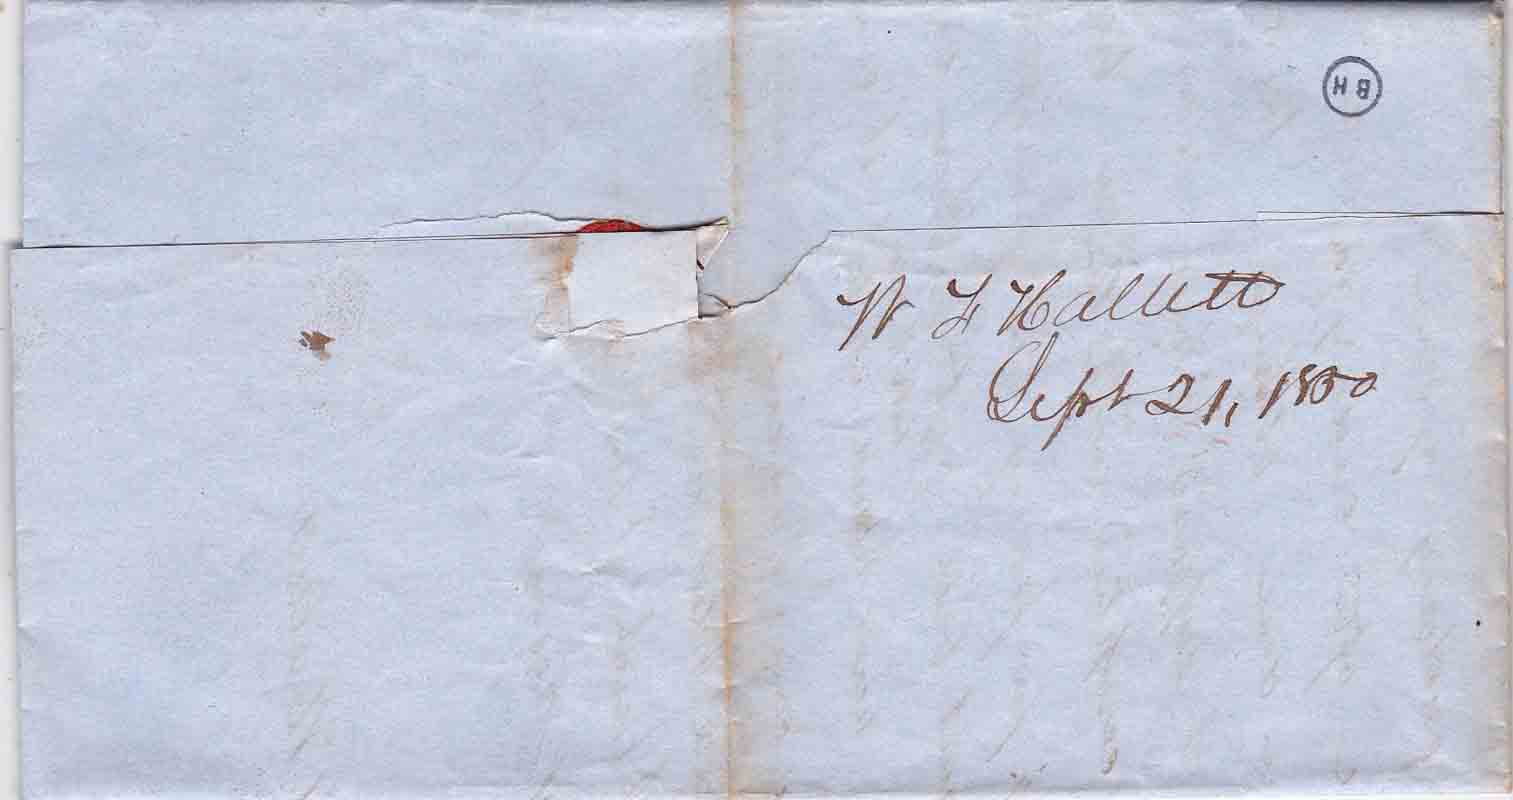 B H
W F Hallett
Sept 21, 1850